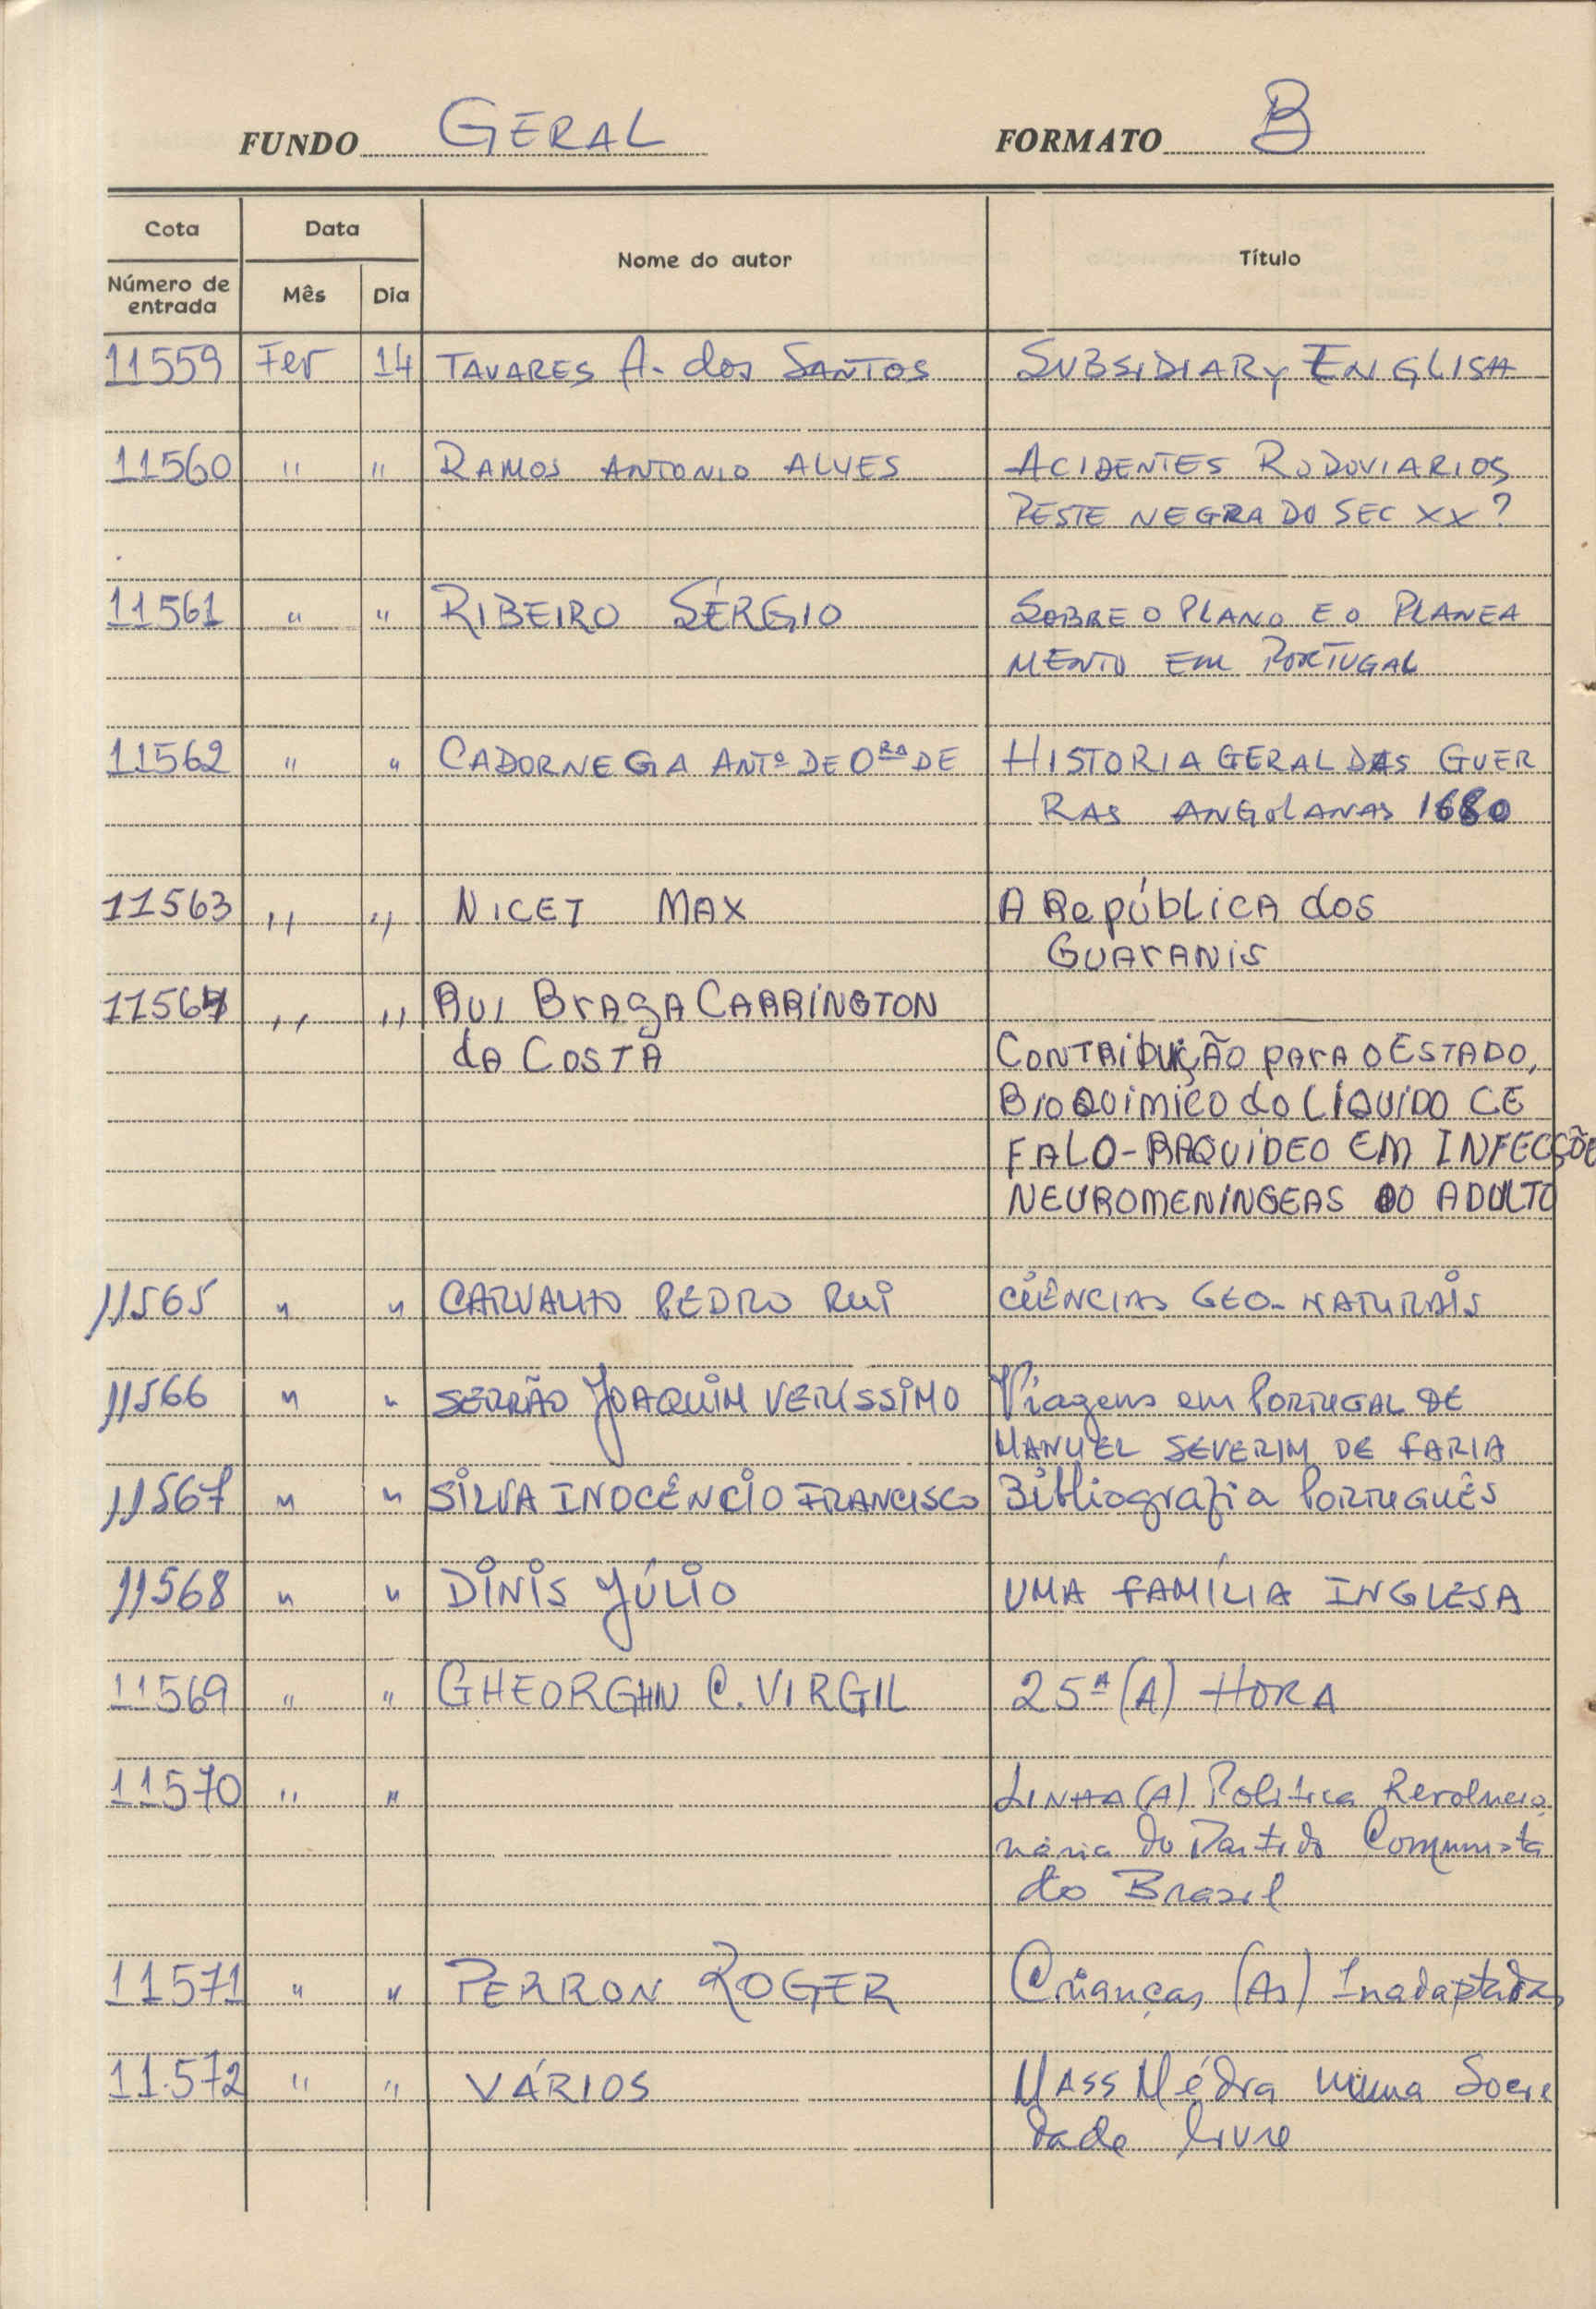 FUNDO GERAL FORMATO B
Cota Data Nome do autor Título
Número de entrada Mês Dia
11559 Fev 14 TAVARES A. dos SANTOS SUBSIDIARY ENGLISH
11560 " " RAMOS ANTONIO ALVES ACIDENTES RODOVIARIOS
PESTE NEGRA DO SEC XX ?
11561 " " RIBEIRO SÉRGIO SOBRE O PLANO E O PLANEA
MENTO EM PORTUGAL
11562 " " CADORNEGA ANTº DE Oᴿᴬ DE HISTORIA GERAL DAS GUER
RAS ANGOLANAS 1680
11563 " " NICET MAX A REPÚBLICA dos
GUARANIS
11564 " " RUI BRAGA CARRINGTON
dA COSTA CONTRIBUIÇÃO PARA O ESTADO,
BIOQUIMICO do LÍQUIDO CE
FALO-RAQUIDEO EM INFECÇÕE
NEUROMENINGEAS DO ADULTO
11565 " " CARVALHO PEDRO RUI CIÊNCIAS GEO-NATURAIS
11566 " " SERRÃO JOAQUIM VERÍSSIMO Viagens em PORTUGAL DE
MANUEL SEVERIM DE FARIA
11567 " " SILVA INOCÊNCIO FRANCISCO Bibliografia PORTUGUÊS
11568 " " DINIS JÚLIO UMA FAMÍLIA INGLESA
11569 " " GHEORGHIU C. VIRGIL 25ª (A) HORA
11570 " " LINHA (A) Politica Revolucio
nária do Partido Comunista
do Brasil
11571 " " PERRON ROGER Crianças (As) Inadaptadas
11.572 " " VÁRIOS MASS Média numa Socie
dade livre